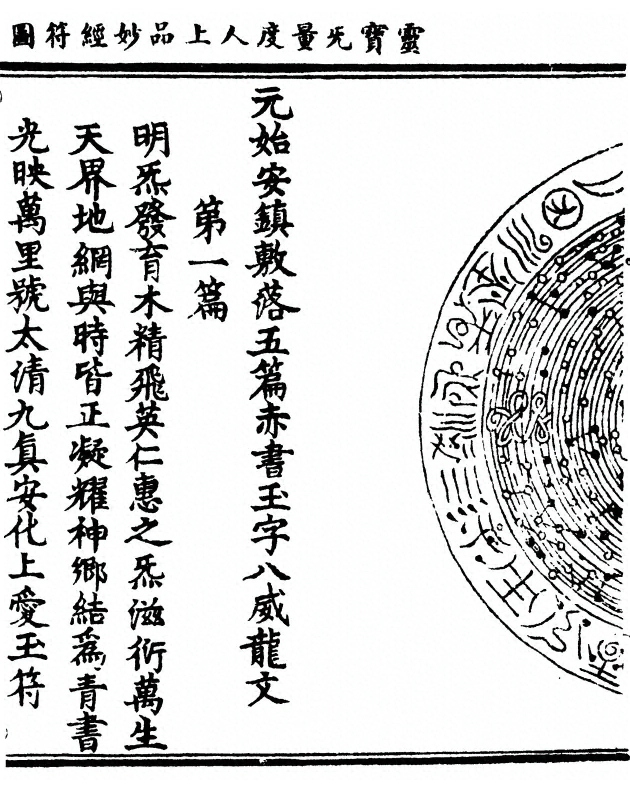 靈寶无量度人上品妙經符圖
元始安鎮敷落五篇赤書玉字八威龍文
第一篇
明炁發育木精飛英仁惠之炁滋衍萬生
天界地網與時皆正凝耀神鄉結為青書
光映萬里號太清九真安化上愛玉符